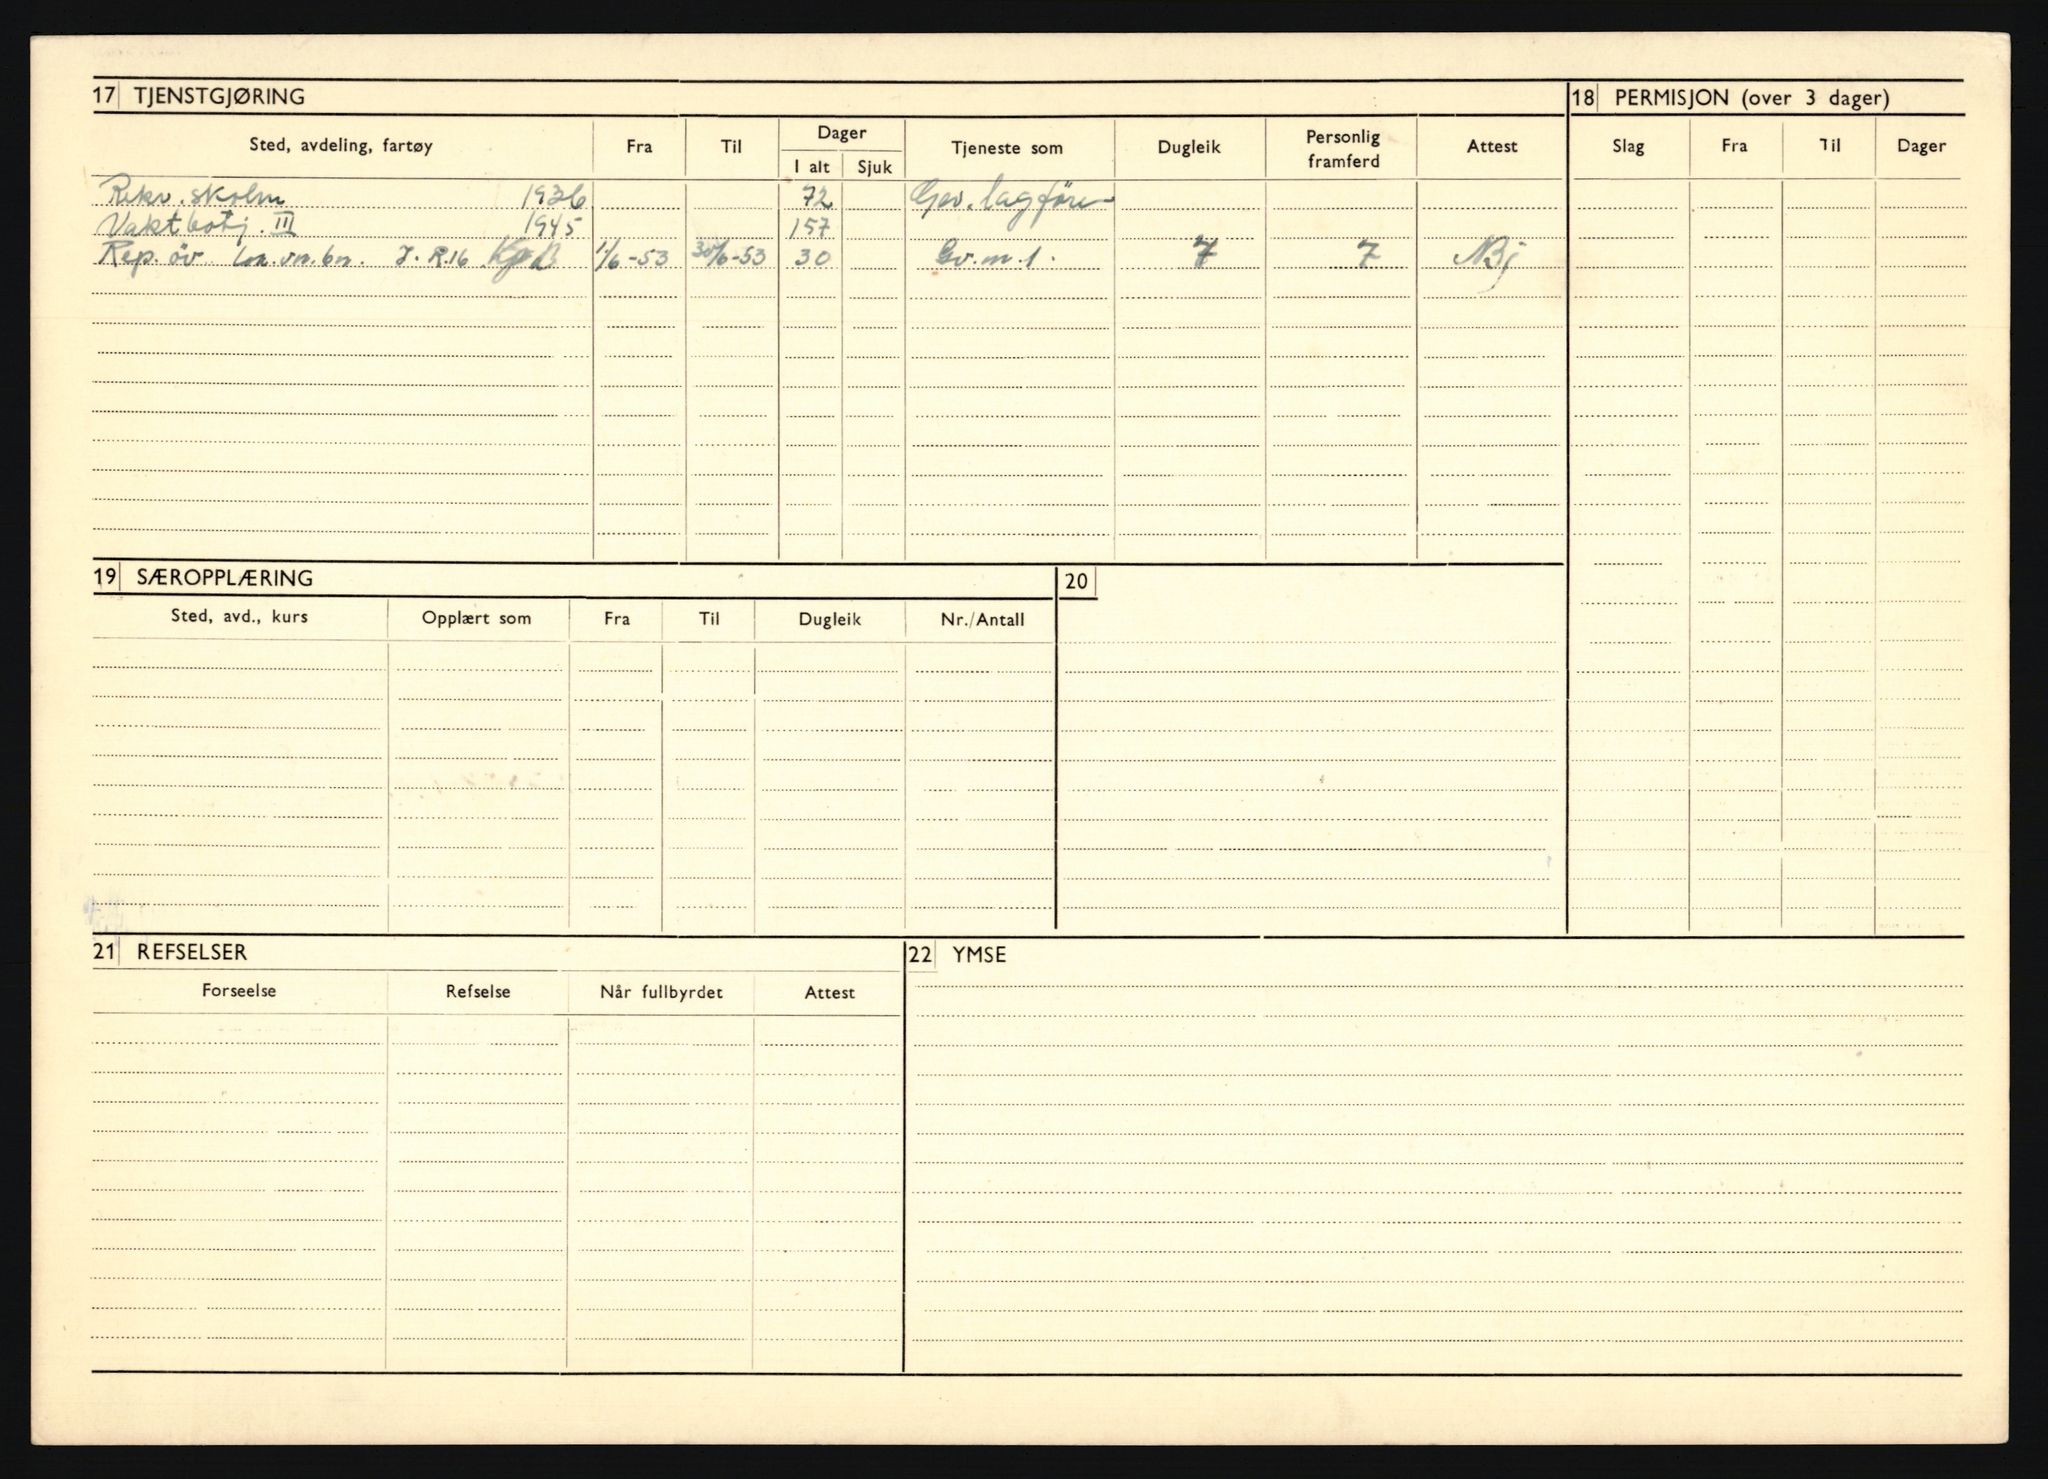 17 TJENSTGJØRING
Sted, avdeling, fartøy Fra Til Dager I alt Sjuk Tjeneste som Dugleik Personlig framferd Attest
Rekr. skolen 1936 72 Gev. lagfører
Vaktbatj. III 1945 157
Rep. öv. J. R. 16 1/6-53 30/6-53 30 Gv. m. 1. 7 7
18 PERMISJON (over 3 dager)
Slag Fra Til Dager
19 SÆROPPLÆRING
Sted, avd., kurs Opplært som Fra Til Dugleik Nr./Antall
20
21 REFSELSER
Forseelse Refselse Når fullbyrdet Attest
22 YMSE